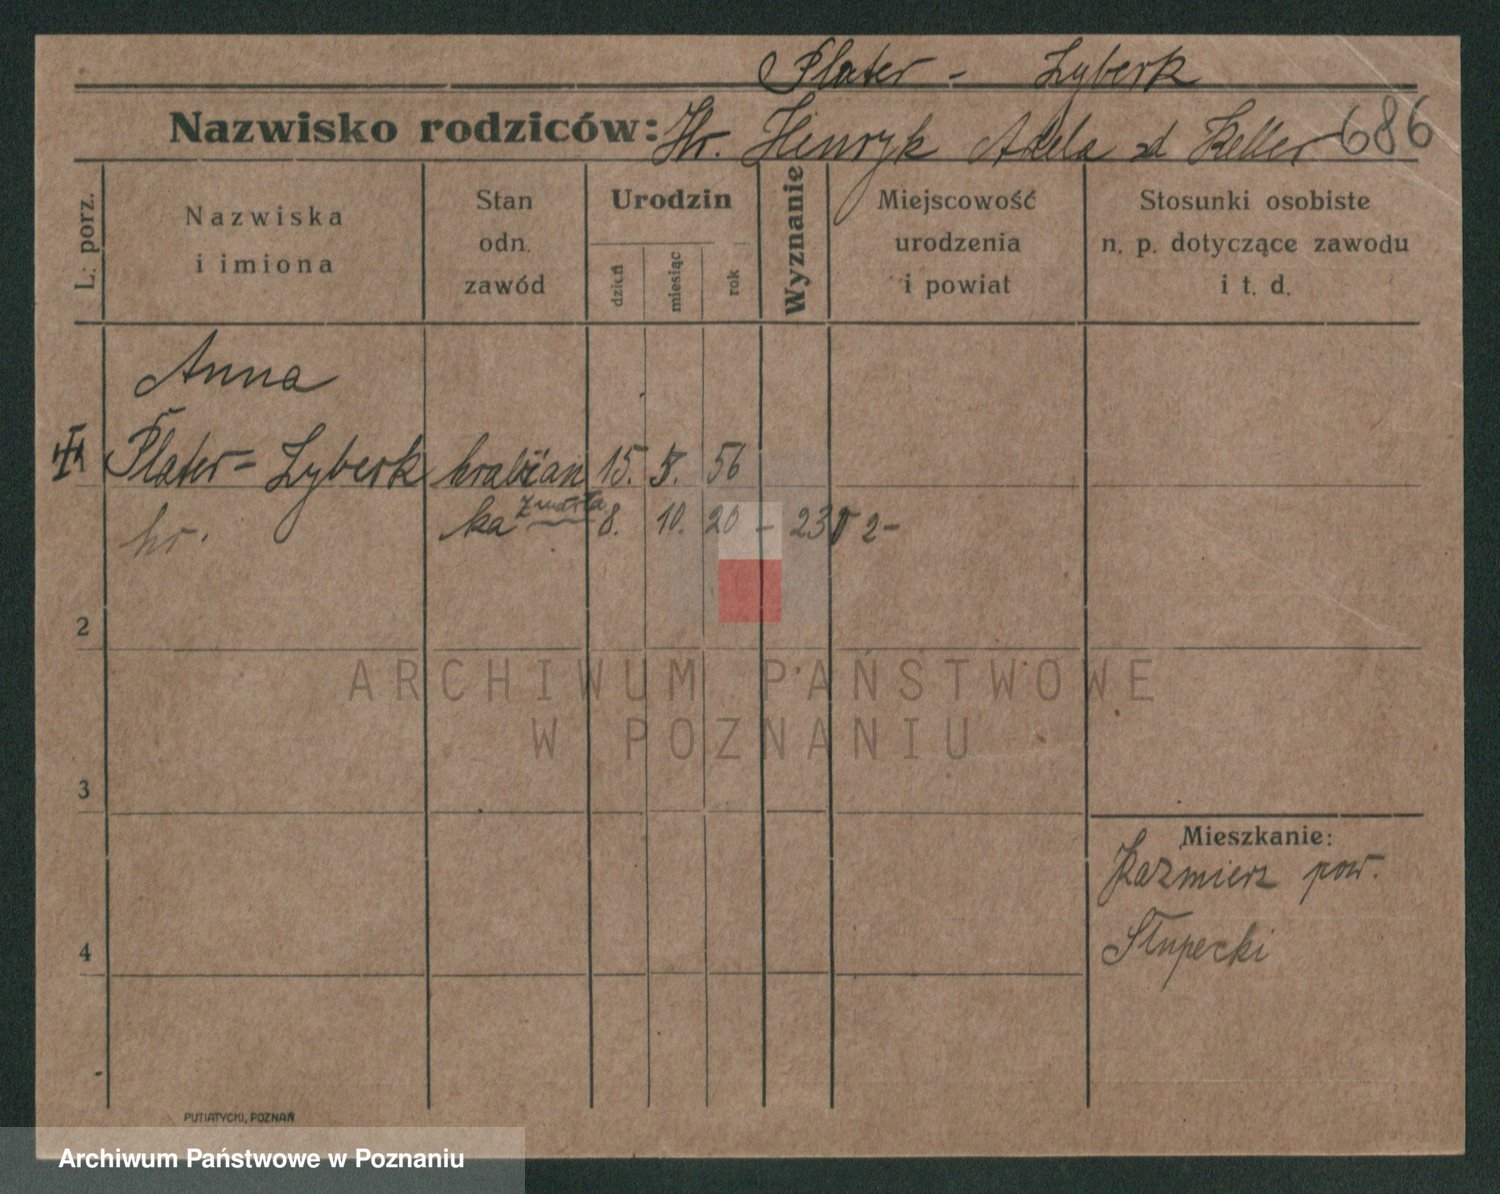 Plater - Zyberk
Nazwisko rodziców: Hr. Henryk Adela zd Keller 686
L: porz.
Nazwiska
i imiona
Stan
odn.
zawód
Urodzin
dzień
miesiąc
rok
Wyznanie
Miejscowość
urodzenia
i powiat
Stosunki osobiste
n. p. dotyczące zawodu
i t. d.
Anna
Plater - Zyberk hrabian 15. 5. 56
hr. ka zmarła 8. 10. 20 - 23 2-
2
ARCHIWUM PAŃSTWOWE
W POZNANIU
3
Mieszkanie:
Kaźmierz pow.
Słupecki
4
PUTIATYCKI, POZNAŃ
Archiwum Państwowe w Poznaniu